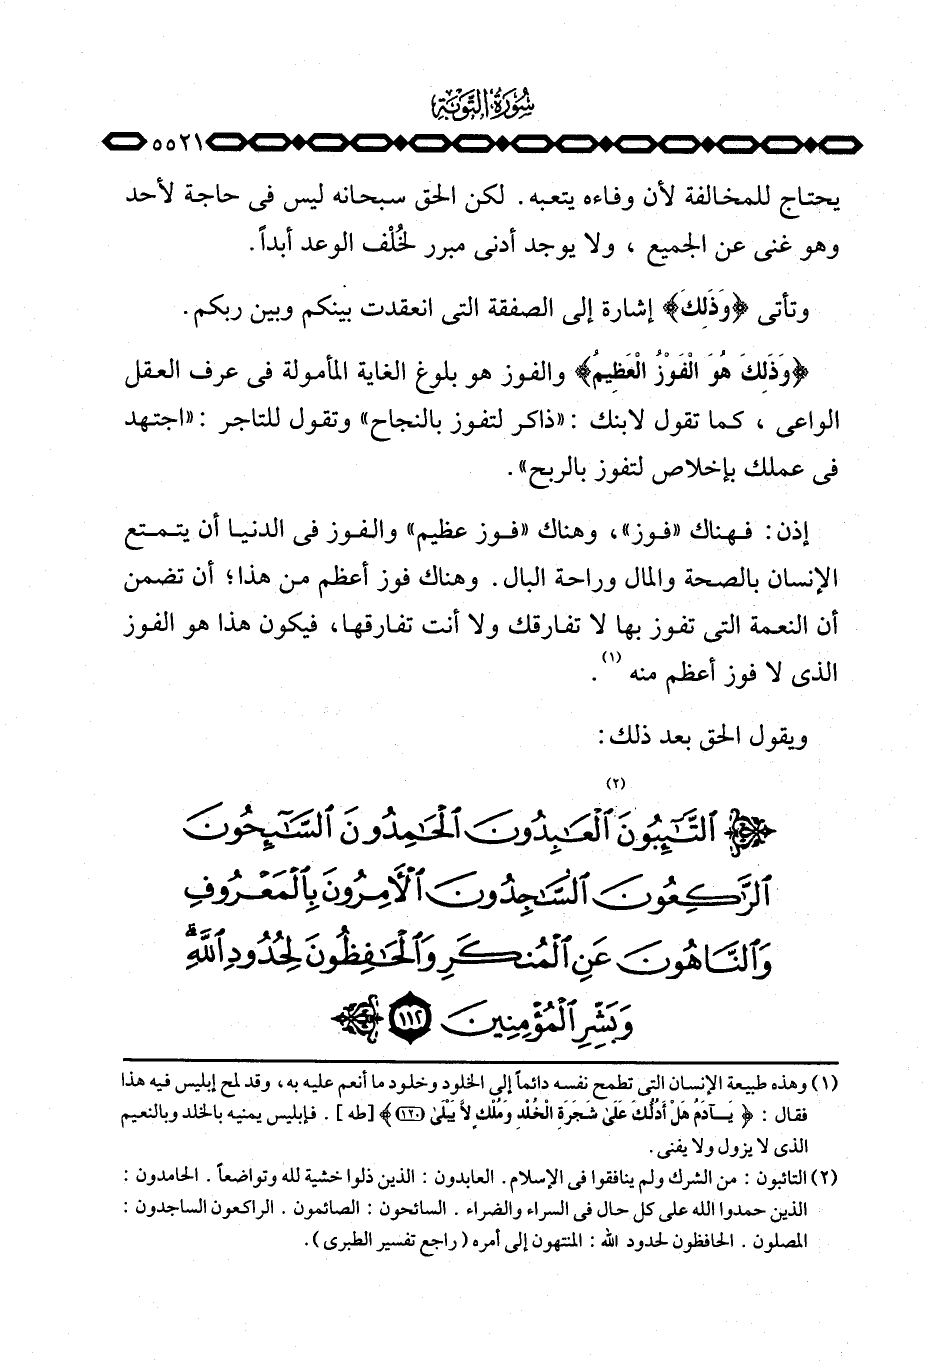 سُورَةُ التَّوْبَةِ
٥٥٢١
يحتاج للمخالفة لأن وفاءه يتعبه. لكن الحق سبحانه ليس فى حاجة لأحد
وهو غنى عن الجميع ، ولا يوجد أدنى مبرر لخُلْف الوعد أبداً.
وتأتى ﴿وَذَلِكَ﴾ إشارة إلى الصفقة التى انعقدت بينكم وبين ربكم.
﴿وَذَلِكَ هُوَ الْفَوْزُ الْعَظِيمُ﴾ والفوز هو بلوغ الغاية المأمولة فى عرف العقل
الواعى ، كما تقول لابنك : «ذاكر لتفوز بالنجاح» وتقول للتاجر : «اجتهد
فى عملك بإخلاص لتفوز بالربح».
إذن: فهناك «فوز»، وهناك «فوز عظيم» والفوز فى الدنيا أن يتمتع
الإنسان بالصحة والمال وراحة البال. وهناك فوز أعظم من هذا؛ أن تضمن
أن النعمة التى تفوز بها لا تفارقك ولا أنت تفارقها، فيكون هذا هو الفوز
الذى لا فوز أعظم منه (١).
ويقول الحق بعد ذلك:
﴿ ٱلتَّٰٓئِبُونَ ٱلْعَٰبِدُونَ (٢) ٱلْحَٰمِدُونَ ٱلسَّٰٓئِحُونَ
ٱلرَّٰكِعُونَ ٱلسَّٰجِدُونَ ٱلْأٓمِرُونَ بِٱلْمَعْرُوفِ
وَٱلنَّاهُونَ عَنِ ٱلْمُنكَرِ وَٱلْحَٰفِظُونَ لِحُدُودِ ٱللَّهِۗ
وَبَشِّرِ ٱلْمُؤْمِنِينَ ١١٢ ﴾
(١) وهذه طبيعة الإنسان التى تطمح نفسه دائماً إلى الخلود وخلود ما أنعم عليه به، وقد لمح إبليس فيه هذا
فقال : ﴿ يَـٰآدَمُ هَلْ أَدُلُّكَ عَلَىٰ شَجَرَةِ الْخُلْدِ وَمُلْكٍ لاَّ يَبْلَىٰ (١٢٠) ﴾ [طه] . فإبليس يمنيه بالخلد وبالنعيم
الذى لا يزول ولا يفنى.
(٢) التائبون : من الشرك ولم ينافقوا فى الإسلام. العابدون : الذين ذلوا خشية لله وتواضعاً . الحامدون :
الذين حمدوا الله على كل حال فى السراء والضراء . السائحون : الصائمون . الراكعون الساجدون :
المصلون . الحافظون لحدود الله : المنتهون إلى أمره ( راجع تفسير الطبرى ).